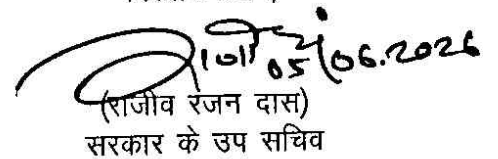 05/06.2026
(राजीव रंजन दास)
सरकार के उप सचिव